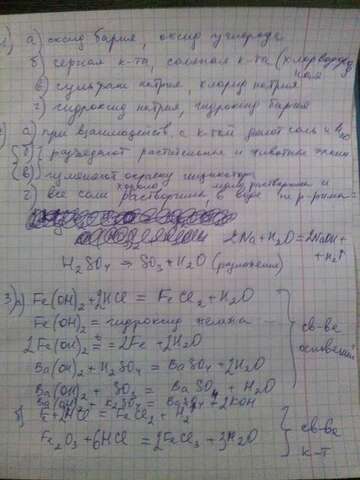 а) оксид бария, оксид углерода
б) серная к-та, соляная к-та (хлороводородная
в) сульфат натрия, хлорид натрия
г) гидроксид натрия, гидроксид бария
а) при взаимодейств. с к-той дают соль и H2O
б) разъедают растительные и животные ткани
в) изменяют окраску индикатора
г) все соли хорошо растворимы, мало растворимы и в воде не р-римы
2Na + H2O = 2NaOH +
+ H2↑
H2SO4 → SO3 + H2O (разложения)
3) а) Fe(OH)2 + 2HCl = FeCl2 + H2O
Fe(OH)2 = гидроксид железа
2Fe(OH)2 = 2Fe + 2H2O
Ba(OH)2 + H2SO4 = BaSO4 + 2H2O
Ba(OH)2 + SO3 = BaSO4 + H2O
Ba(OH)2 + K2SO4 = BaSO4 + 2KOH
св-ва
оснований
б) Fe + 2HCl = FeCl2 + H2
Fe2O3 + 6HCl = 2FeCl3 + 3H2O
св-ва
к-т